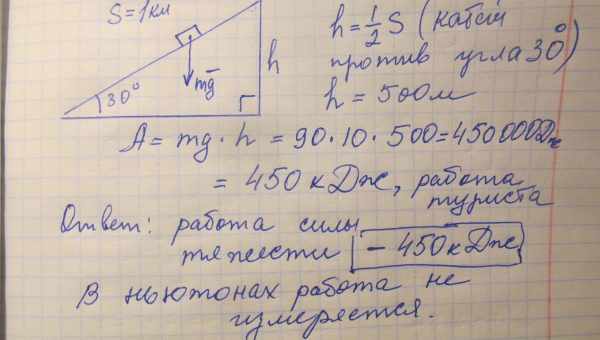 S = 1км
h = 1/2 S (катет
против угла 30°)
h = 500м
h
mg
30°
A = mg · h = 90 · 10 · 500 = 450 000 Дж
= 450 кДж, работа
туриста
Ответ: работа силы
тяжести - 450 кДж
В ньютонах работа не
измеряется.